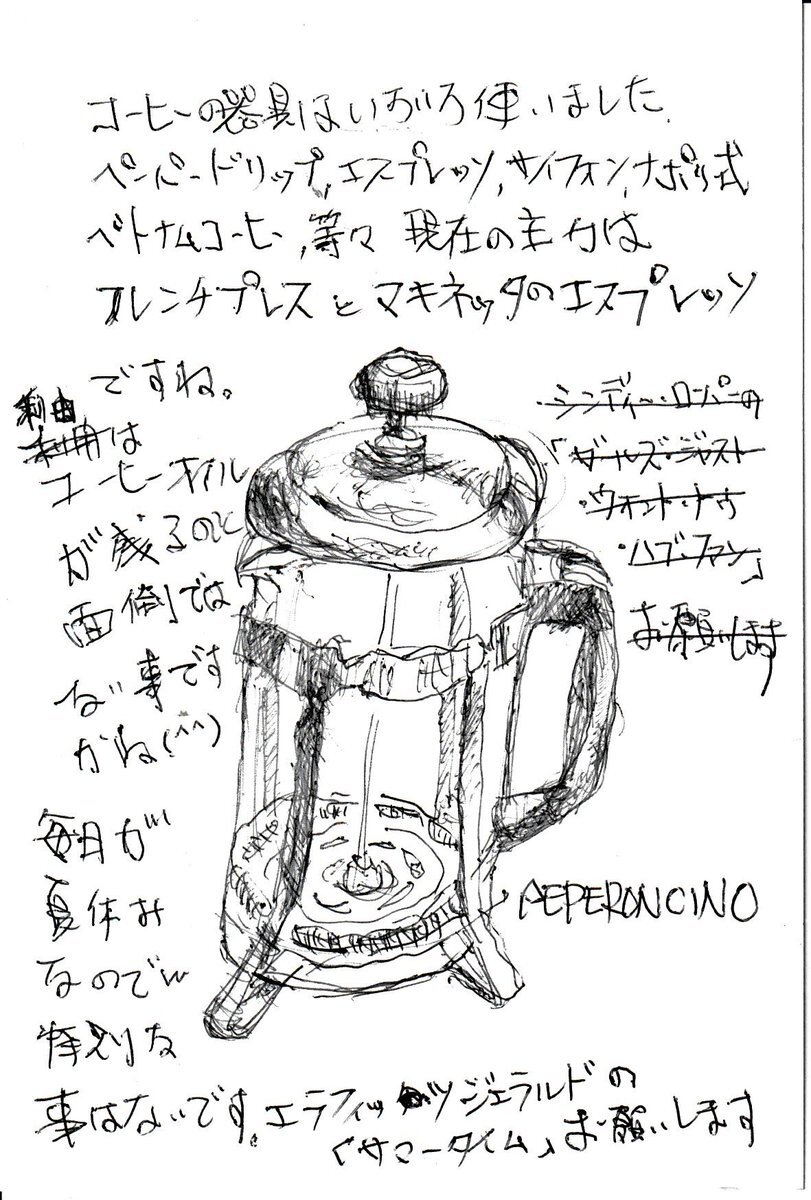 コーヒーの器具はいろいろ使いました.
ペーパードリップ,エスプレッソ,サイフォン,ナポリ式
ベトナムコーヒー,等々 現在の主力は
フレンチプレスとマキネッタのエスプレッソ
ですね。
利用
理由は
コーヒーオイル
が残るのと
面倒では
ない事です
かね(^^)
シンディー・ローパーの
「ガールズ・ジャスト
・ウォント・トゥ
・ハブ・ファン」
お願いします
毎日が
夏休み
なのでw
特別な
事はないです,エラフィッツジェラルドの
「サマータイム」お願いします
PEPERONCINO